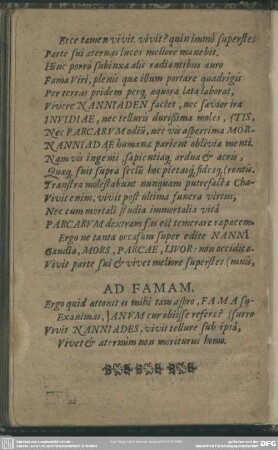 Ecce tamen vivit. vivit? quin immò superstes
Parte sui æternas luces meliore manebit.
Hinc porrò subinxa alis radiantibus auro
Fama Viri, plenis quæ illum portare quadrigis
Per terras pridem perq; æquora lata laborat,
Vivere NANNIADEN faciet, nec sævior ira
INVIDIAE, nec telluris durißima moles, (TIS,
Nec PARCARVM odiū, nec vis asperrima MOR-
NANNIADAE humanâ parient oblivia menti.
Nam vis ingenii, sapientiaq; ardua & acris,
Quæq; fuit supra secli hoc pietasq; fidesq; (rontis.
Transtra molestabunt nunquam putrefacta Cha-
Vivit enim, vivit post ultima funera virtus,
Nec cum mortali studia immortalia vitâ
PARCARVM dextram fas est temerare rapacem.
Ergo ne tanta occasum super edite NANNI
Gaudia, MORS, PARCAE, LIVOR: non occidit o-
Vivit parte sui & vivet meliore superstes (mnis,
AD FAMAM.
Ergo quid attonitis mihi tam astro, FAMA
Exanimas, VANVM cur obiisse refers? (surro
Vivit NANNIADES, vivit tellure sub ipsâ,
Vivet & æternùm non moriturus homo.